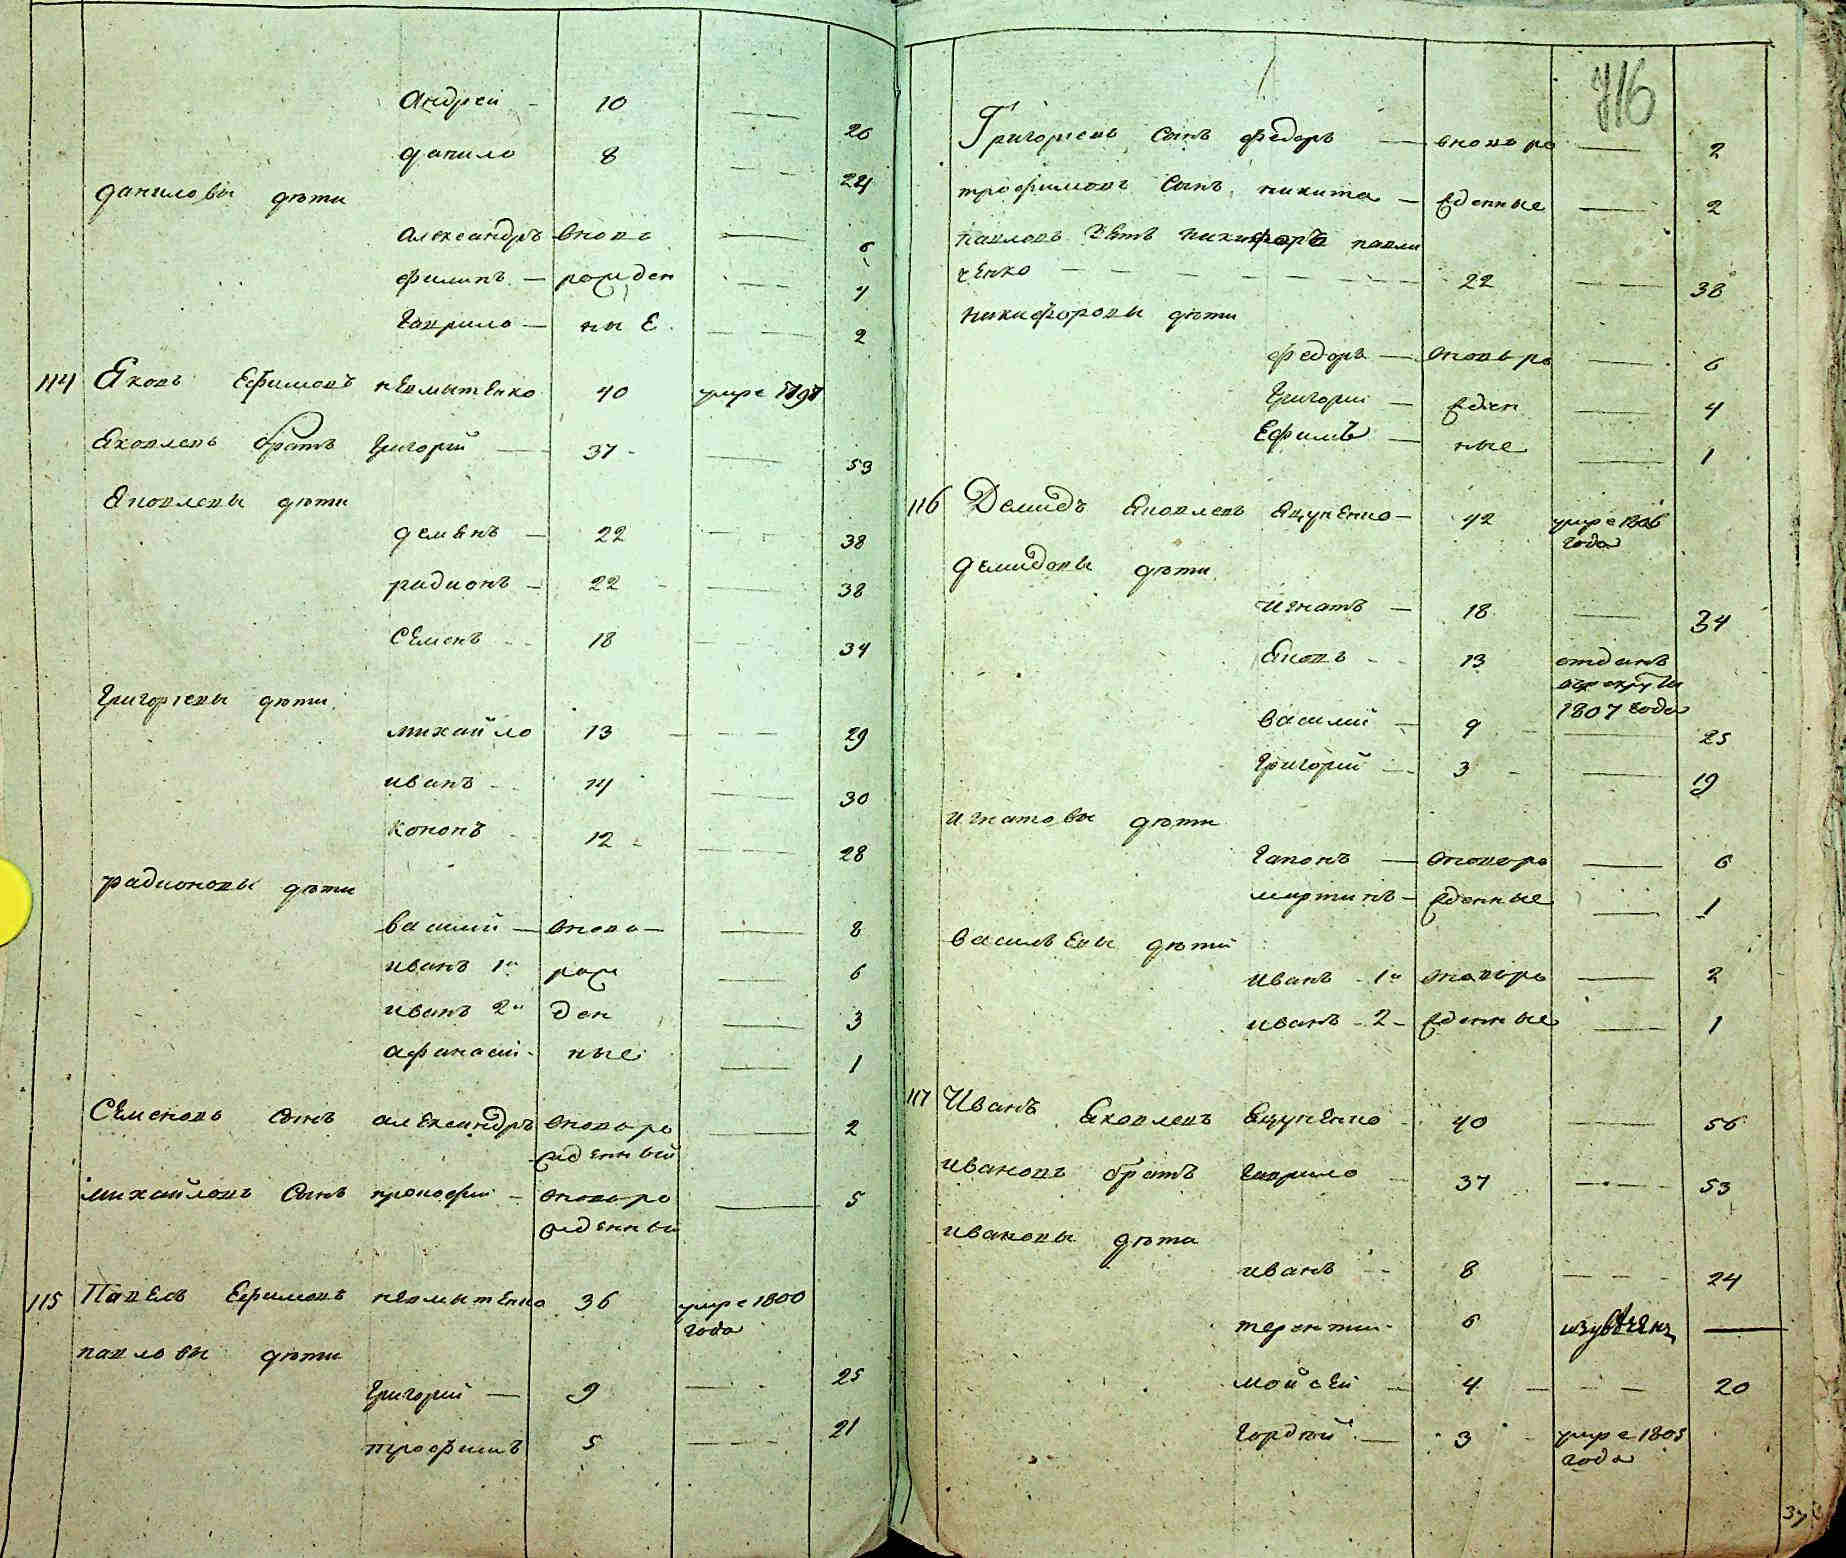 андрей - 10 — 26
данило 8 — 24
даниловы дѣти
александръ вновь — 6
филипъ - рожден — 4
гаврило - ные — 2
114 Яковъ Ефимовъ невмытенко 40 умре 1797
Яковлевъ братъ григорий — 37 — 53
Яковлевы дѣти
демянъ — 22 — 38
радионъ - 22 — 38
семенъ - 18 — 34
григорьевы дѣти
михайло 13 — 29
иванъ - 14 — 30
кононъ - 12 — 28
радионовы дѣти
василий — вново — 8
иванъ 1й рож — 6
иванъ 2й ден — 3
афанасий - ные — 1
Семеновъ сынъ александръ вновь ро — 2
жденный
михайловъ сынъ прокофий - вновь ро — 5
жденный
115 Павелъ Ефимовъ невмытенко 36 умре 1800
года
павловы дѣти
григорий — 9 — 25
трофимъ 5 — 21
716
Григорьевъ сынъ федоръ — вновь ро — 2
трофимовъ сынъ никита — жденные — 2
павловъ зять никифоръ павли
ченко — 22 — 38
никифоровы дѣти
федоръ — вновь ро — 6
григорий — жден — 4
Ефимъ — ные — 1
116 Демидъ Яковлевъ Яцученко — 42 умре 1806
года
демидовы дѣти
игнатъ — 18 — 34
Яковъ - 13 отданъ
в рекруты
1807 года
василий — 9 — 25
григорий — 3 — 19
игнатовы дѣти
гапонъ — вновь ро — 6
мартинъ — жденные — 1
васильевы дѣти
иванъ - 1й вновь ро — 2
иванъ - 2 - жденные — 1
117 Иванъ Яковлевъ Яцученко 40 — 56
ивановъ братъ гаврило - 37 — 53
ивановы дѣти
иванъ - 8 — 24
терентий - 6 изувѣченъ —
мойсей — 4 — 20
гордѣй — 3 - умре 1805
года